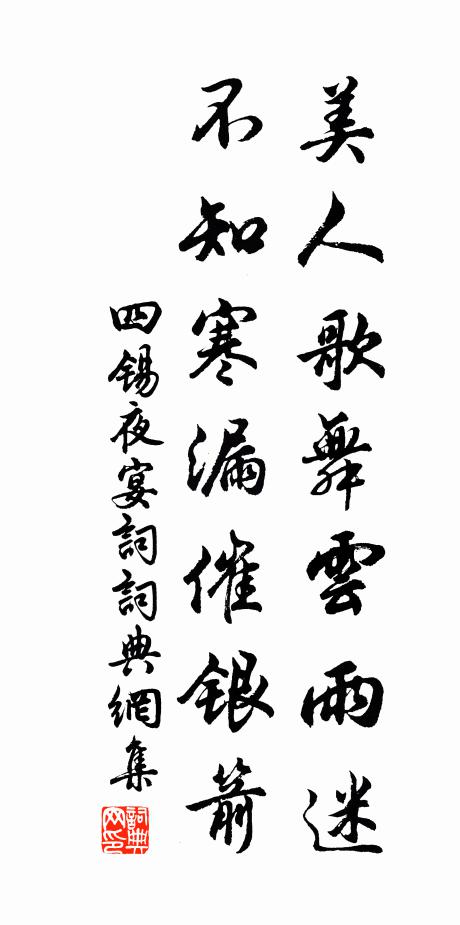 美人歌舞雲雨迷
不知寒漏催銀箭
四錫夜宴詞詞典網集
詞典網印